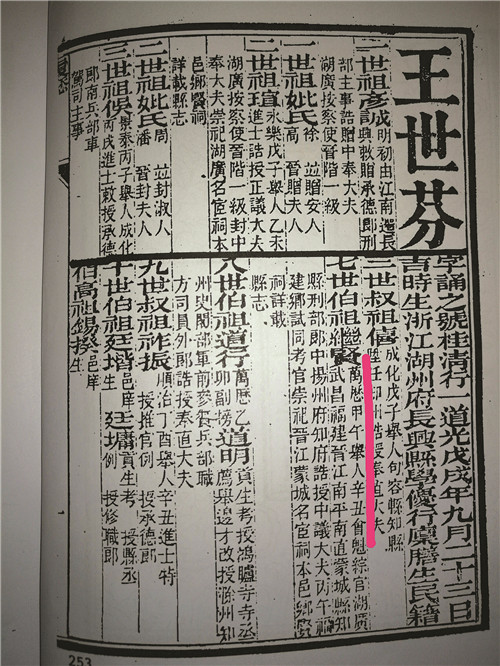 王世芬
字誦之號桂清行一道光戊戌年九月二十三日
吉時生浙江湖州府長興縣學優行廩膳生民籍
一世祖彥誠 明初由江南遷長
興敕贈承德郎刑
部主事誥贈中奉大夫
湖廣按察使晉階一級
一世祖妣氏 徐 並贈安人
高 晉贈夫人
二世祖瑄 永樂戊子舉人乙未
進士誥授正議大夫
湖廣按察使晉階一級封中
奉大夫崇祀湖廣名宦祠本
邑鄉賢祠
詳載縣志
二世祖妣氏 周 並封淑人
潘 晉封夫人
三世祖俁 景泰丙子舉人成化
丙戌進士敕授承德
郎南兵部車
駕司主事
三世叔祖僖 成化戊子舉人句容縣知縣
任邳州誥授奉直大夫
七世伯祖繼賢 萬歷甲午舉人辛丑會魁綜官湖廣
武昌福建晉江南平直蒙城縣知
縣刑部郎中揚州府知府誥授中議大夫丙午福
建鄉試同考官崇祀晉江蒙城名宦祠本邑鄉賢
祠詳載
縣志
八世伯祖道行 萬歷乙
卯副榜 道明 貢生考授鴻臚寺寺丞
薦舉邊才改授滁州知
州史閣部軍前參贊兵部職
方司員外郎誥授奉直大夫
九世叔祖祚振 順治丁酉舉人辛丑進士特
授推官例授承德郎
十世伯祖廷堦 邑庠生 廷墉 貢生考授縣丞
例授修職郎
伯高祖錫揆 邑庠生
253